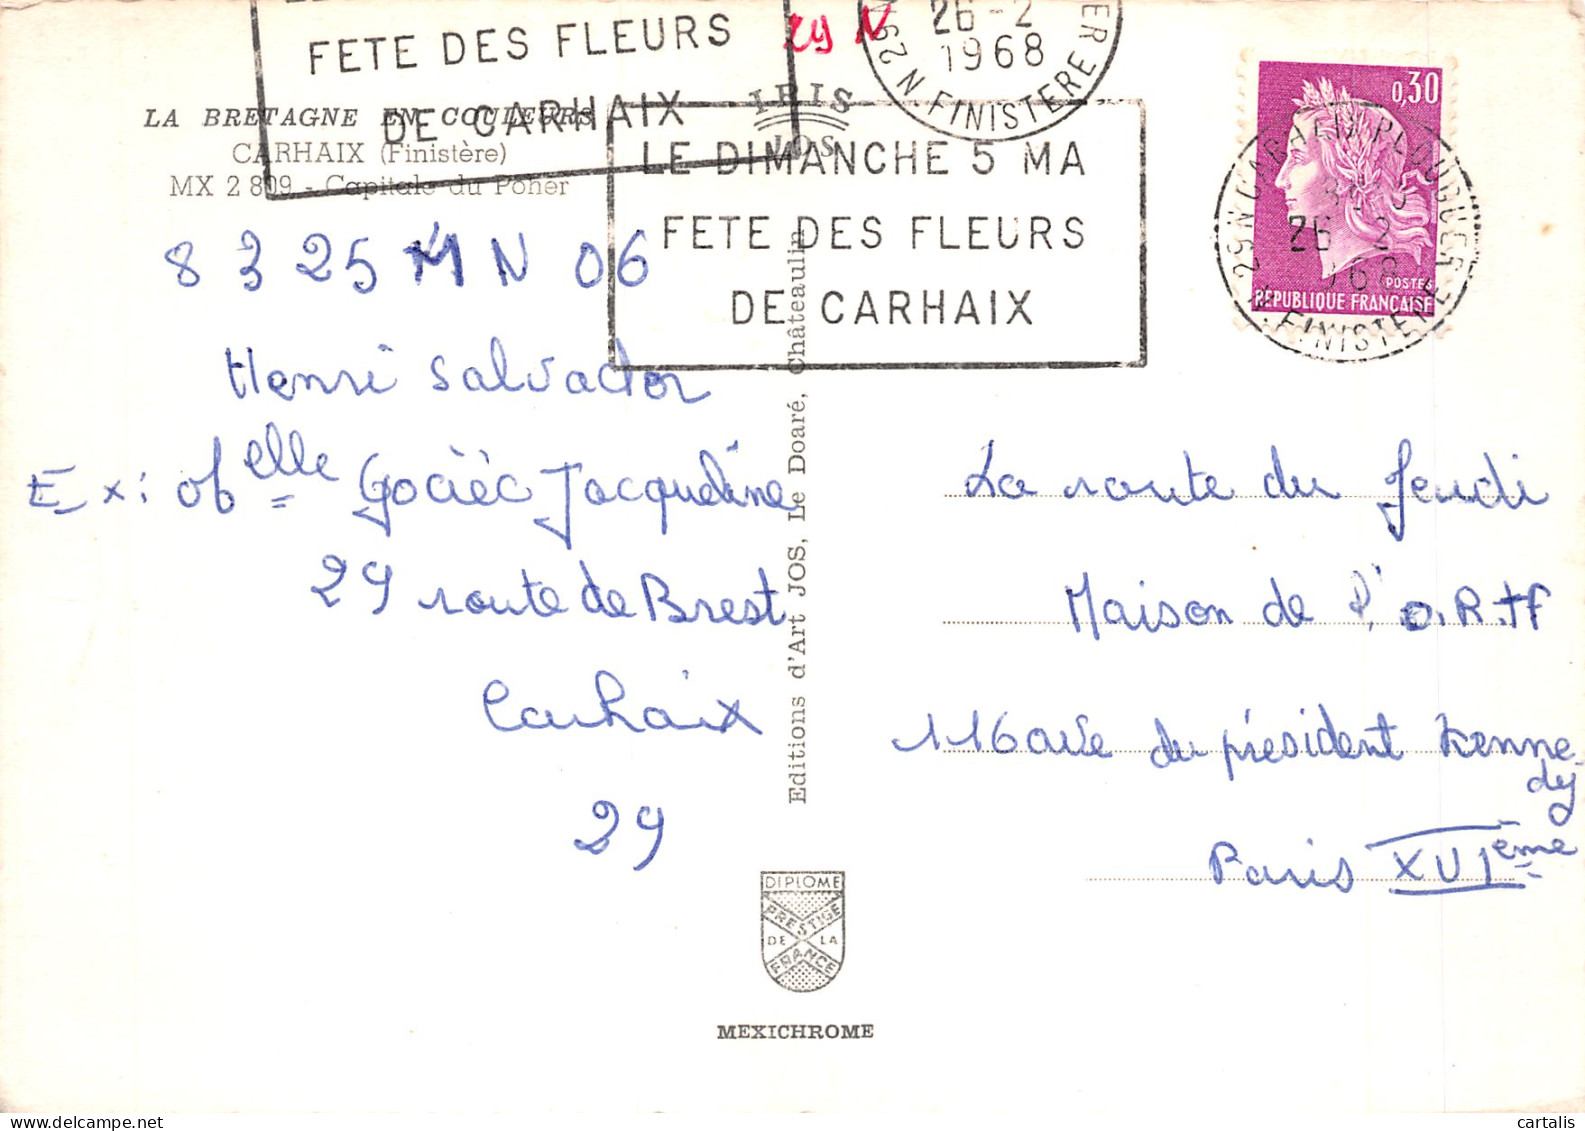 FETE DES FLEURS
DE CARHAIX
29 N
26-2
1968
29 N FINISTERE
LA BRETAGNE EN COULEURS
CARHAIX (Finistère)
MX 2 809 - Capitale du Poher
IRIS
JOS
LE DIMANCHE 5 MA
FETE DES FLEURS
DE CARHAIX
0,30
POSTES
REPUBLIQUE FRANÇAISE
29 N CARHAIX PLOUGUER
26 2
1968
N. FINISTERE
8 3 25 MN 06
Henri Salvador
Ex: of elle Jacqueline
29 route de Brest
Carhaix
29
Editions d'Art JOS, Le Doaré, Châteaulin
La route du Jeudi
Maison de l'O.R.T.F
116 ave du président Kenne
dy
Paris XVIème
DIPLOME
PRESTIGE
DE LA
FRANCE
MEXICHROME
cartalis